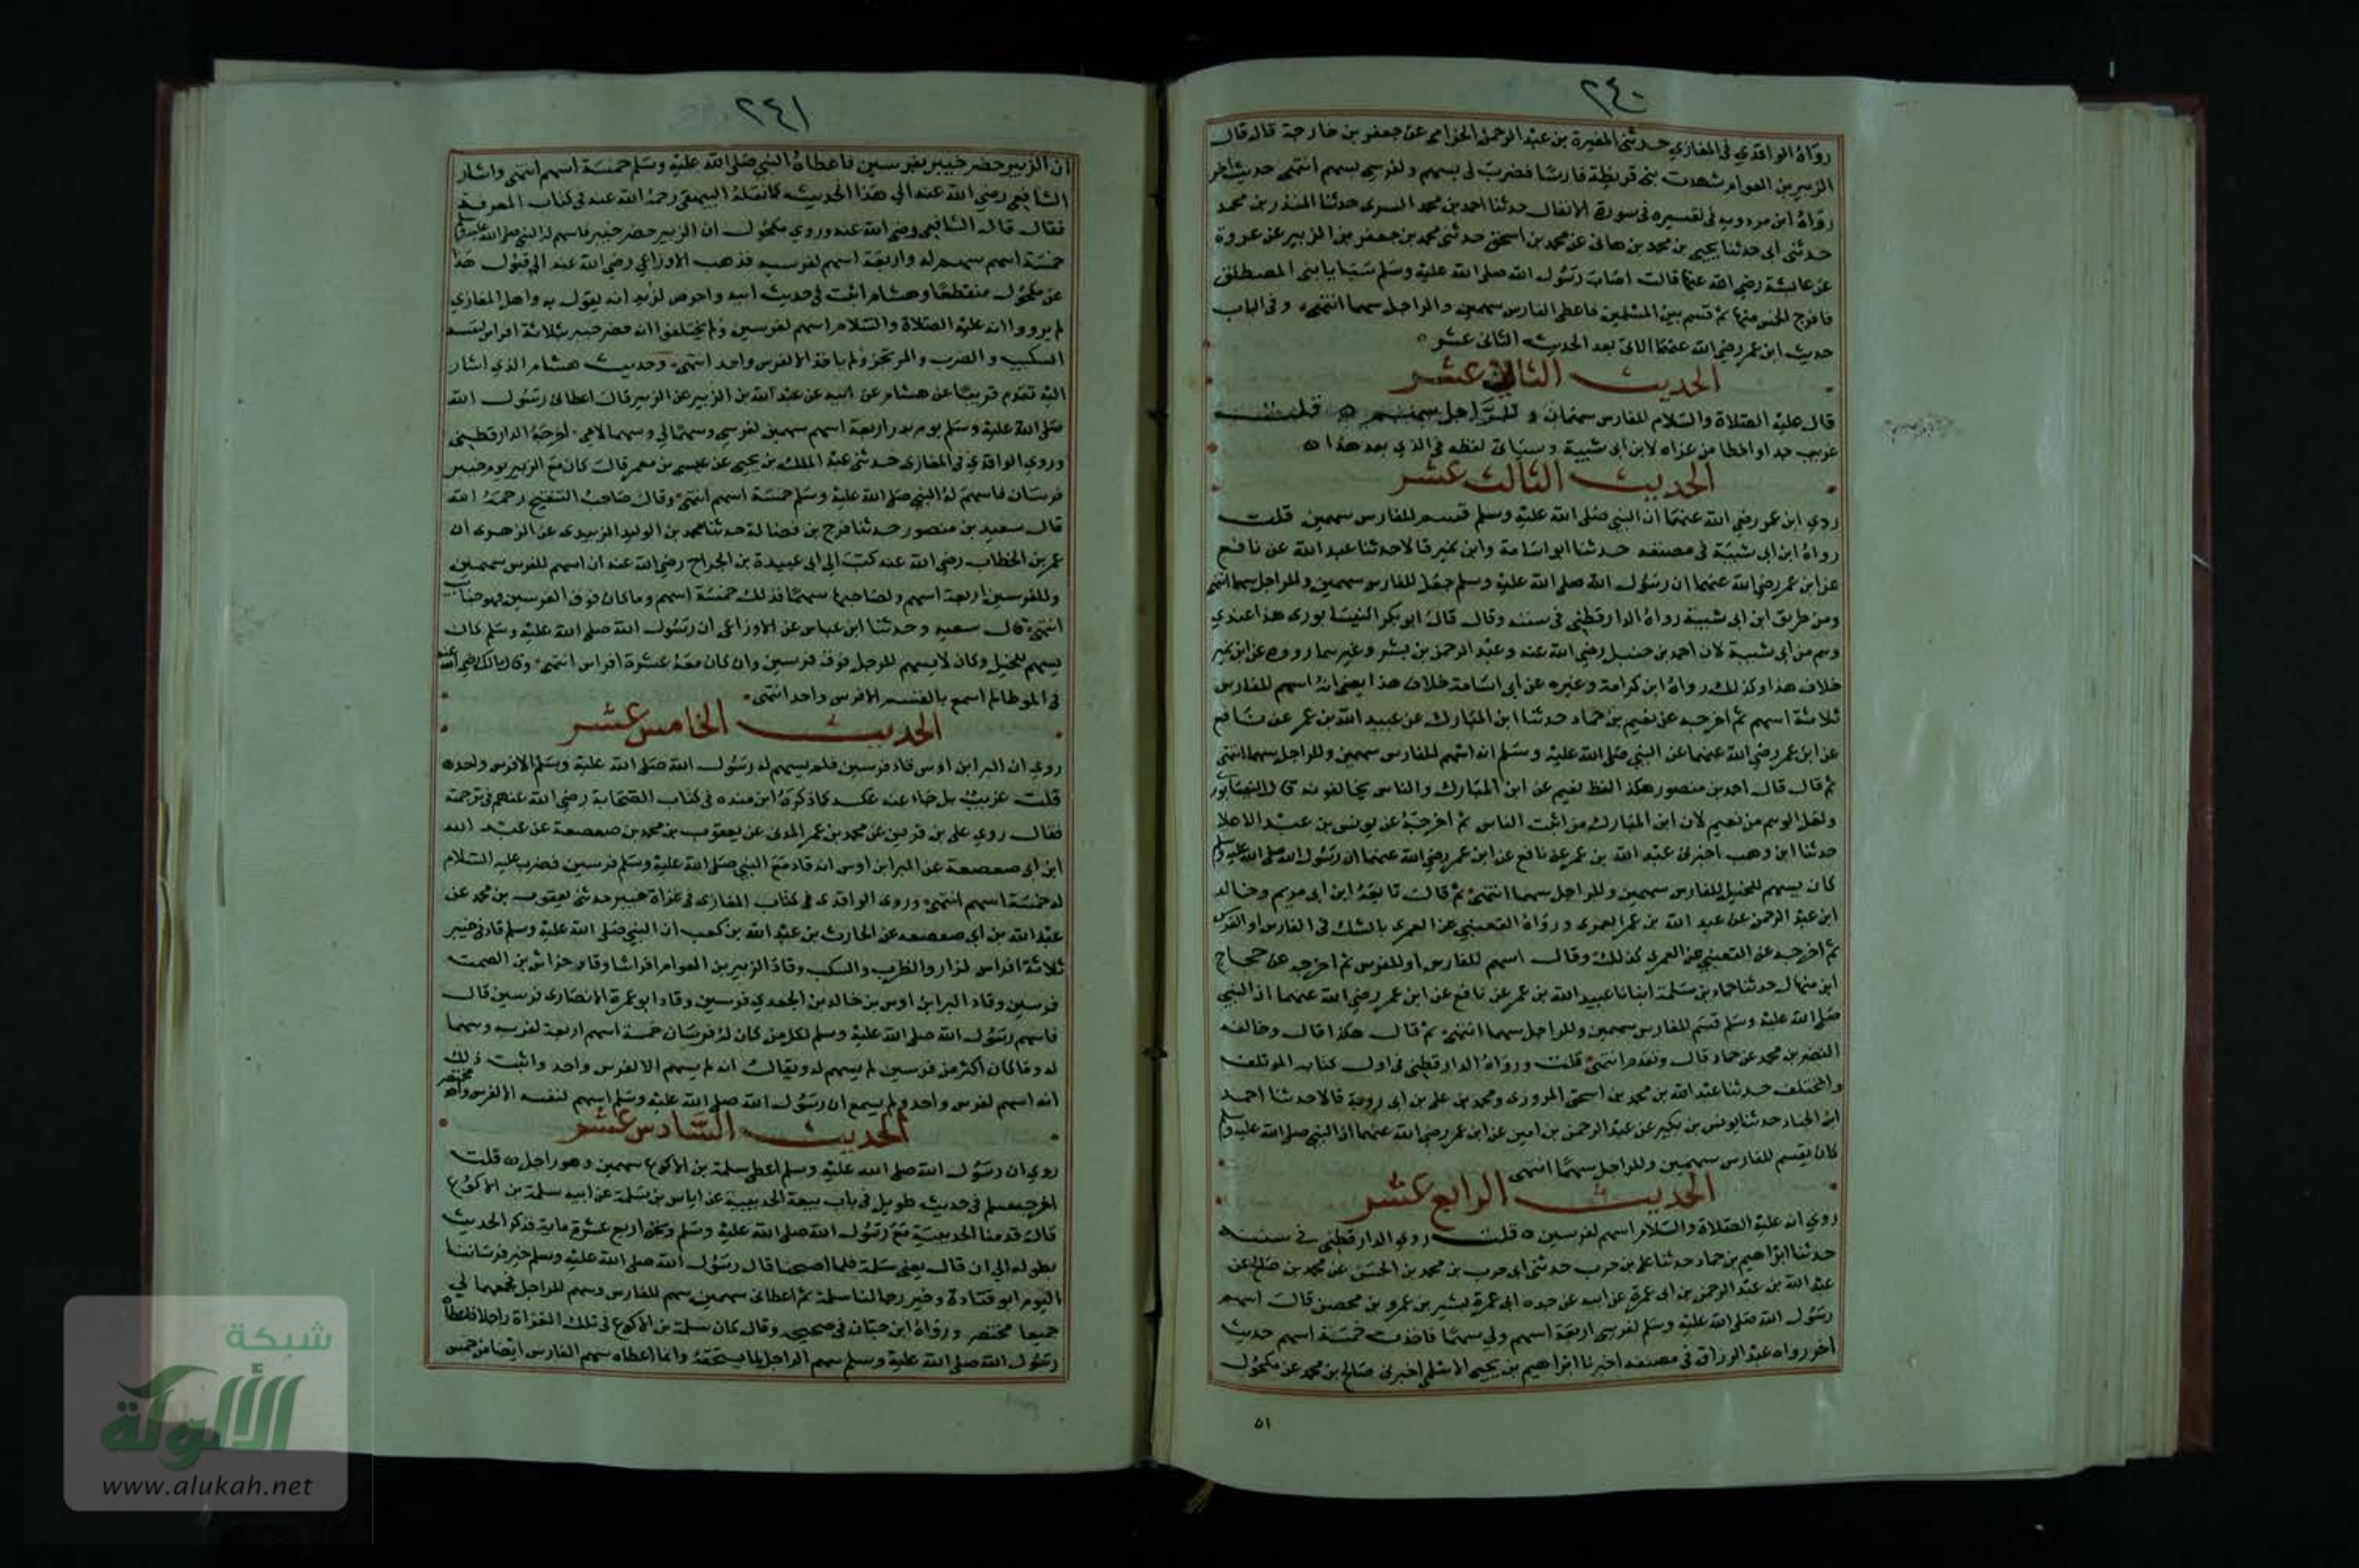 ٢٤٠
رواه الواقدي في المغازي حدثني المغيرة بن عبد الرحمن الحزامي عن جعفر بن خارجة قال قال
الزبير بن العوام شهدت بني قريظة فارسا فضرب لي بسهم ولفرسي بسهم انتهى حديث اخر
رواه ابن مردويه في تفسيره في سورة الانفال حدثنا احمد بن محمد السري حدثنا المنذر بن محمد
حدثني ابي حدثنا يحيى بن محمد بن هاني عن محمد بن اسحق حدثني محمد بن جعفر بن الزبير عن عروة
عن عائشة رضي الله عنها قالت اصاب رسول الله صلى الله عليه وسلم سبايا بني المصطلق
فاخرج الخمس منها ثم قسم بين المسلمين فاعطى الفارس سهمين والراجل سهما انتهى وفي الباب
حديث ابن عمر رضي الله عنهما الاتي بعد الحديث الثاني عشر
الحديث الثاني عشر
قال عليه الصلاة والسلام للفارس سهمان وللراجل سهم قلت
غريب جدا واخطا من عزاه لابن ابي شيبة وسياتي لفظه في الذي بعد هذا
الحديث الثالث عشر
روي ابن عمر رضي الله عنهما ان النبي صلى الله عليه وسلم قسم للفارس سهمين قلت
رواه ابن ابي شيبة في مصنفه حدثنا ابو اسامة وابن نمير قالا حدثنا عبيد الله عن نافع
عن ابن عمر رضي الله عنهما ان رسول الله صلى الله عليه وسلم جعل للفارس سهمين وللراجل سهما انتهى
ومن طريق ابن ابي شيبة رواه الدارقطني في سننه وقال قال ابو بكر النيسابوري هذا عندي
وهم من ابي شيبة لان احمد بن حنبل رضي الله عنه وعبد الرحمن بن بشر وغيرهما رووه عن ابن نمير
خلاف هذا وكذلك رواه ابن كرامة وغيره عن ابي اسامة خلاف هذا يعني انه اسهم للفارس
ثلاثة اسهم ثم اخرجه عن نعيم بن حماد حدثنا ابن المبارك عن عبيد الله بن عمر عن نافع
عن ابن عمر رضي الله عنهما عن النبي صلى الله عليه وسلم انه اسهم للفارس سهمين وللراجل سهما انتهى
ثم قال قال احمد بن منصور هكذا لفظ نعيم عن ابن المبارك والناس يخالفونه قال النيسابوري
ولعل الوهم من نعيم لان ابن المبارك من اثبت الناس ثم اخرجه عن يونس بن عبد الاعلا
حدثنا ابن وهب اخبرني عبد الله بن عمر عن نافع عن ابن عمر رضي الله عنهما ان رسول الله صلى الله عليه وسلم
كان يسهم للخيل للفارس سهمين وللراجل سهما انتهى ثم قال تابعه ابن ابي مريم وخالد
ابن عبد الرحمن عن عبد الله بن عمر العمري ورواه القعنبي عن العمري بالشك في الفارس او الفرس
ثم اخرجه عن القعنبي عن العمري كذلك وقال اسهم للفارس او للفرس ثم اخرجه عن حجاج
ابن منهال حدثنا حماد بن سلمة انبانا عبيد الله بن عمر عن نافع عن ابن عمر رضي الله عنهما ان النبي
صلى الله عليه وسلم قسم للفارس سهمين وللراجل سهما انتهى ثم قال هكذا قال وخالفه
النضر بن محمد عن حماد قال وتقدم انتهى قلت ورواه الدارقطني في اول كتاب المؤتلف
والمختلف حدثنا عبد الله بن محمد بن اسحق المروزي ومحمد بن علي بن ابي روبة قالا حدثنا احمد
ابن الجبار حدثنا يونس بن بكير عن عبد الرحمن بن امين عن ابن عمر رضي الله عنهما ان النبي صلى الله عليه وسلم
كان يقسم للفارس سهمين وللراجل سهما انتهى
الحديث الرابع عشر
روي انه عليه الصلاة والسلام اسهم لفرسين قلت روي الدارقطني في سننه
حدثنا ابراهيم بن حماد حدثنا علي بن حرب حدثني ابي حرب بن محمد بن الحسن عن محمد بن صالح عن
عبد الله بن عبد الرحمن بن ابي عمرة عن ابيه عن جده ابي عمرة بشير بن عمرو بن محصن قال اسهم
رسول الله صلى الله عليه وسلم لفرسي اربعة اسهم ولي سهما فاخذت خمسة اسهم حديث
اخر رواه عبد الرزاق في مصنفه اخبرنا ابراهيم بن يحيى الاسلمي اخبرني صالح بن محمد عن مكحول
٥١
٢٤١
ان الزبير حضر خيبر بفرسين فاعطاه النبي صلى الله عليه وسلم خمسة اسهم انتهى واشار
الشافعي رضي الله عنه الي هذا الحديث كما نقله البيهقي رحمه الله عنه في كتاب المعرفة
فقال قال الشافعي رضي الله عنه وروي مكحول ان الزبير حضر خيبر فاسهم له النبي صلى الله عليه وسلم
خمسة اسهم سهم له واربعة اسهم لفرسيه فذهب الاوزاعي رضي الله عنه الي قبول هذا
عن مكحول منقطعا وهشام اثبت في حديث ابيه واحرص لو زيد انه يقول به واهل المغازي
لم يرووا انه عليه الصلاة والسلام اسهم لفرسين ولم يختلفوا انه حضر خيبر بثلاثة افراس لنفسه
السكب والضرب والمرتجز ولم ياخذ الا لفرس واحد انتهى وحديث هشام الذي اشار
اليه تقدم قريبا عن هشام عن ابيه عن عبد الله بن الزبير عن الزبير قال اعطاني رسول الله
صلى الله عليه وسلم يوم بدر اربعة اسهم سهمين لفرسي وسهما لي وسهما لامي اخرجه الدارقطني
وروي الواقدي في المغازي حدثني عبد الملك بن يحيى عن عيسى بن معمر قال كان مع الزبير يوم خيبر
فرسان فاسهم له النبي صلى الله عليه وسلم خمسة اسهم انتهى وقال صاحب التنقيح رحمه الله
قال سعيد بن منصور حدثنا فرج بن فضالة حدثنا محمد بن الوليد الزبيدي عن الزهري ان
عمر بن الخطاب رضي الله عنه كتب الي ابي عبيدة بن الجراح رضي الله عنه ان اسهم للفرس سهمين
وللفرسين اربعة اسهم ولصاحبها سهما فذلك خمسة اسهم وما كان فوق الفرسين فهو جنايب
انتهى قال سعيد وحدثنا ابن عياش عن الاوزاعي ان رسول الله صلى الله عليه وسلم كان
يسهم للخيل وكان لا يسهم للرجل فوق فرسين وان كان معه عشرة افراس انتهى وقال مالك رضي الله عنه
في الموطا لم اسمع بالقسم الا لفرس واحد انتهى
الحديث الخامس عشر
روي ان البرا بن اوس قاد فرسين فلم يسهم له رسول الله صلى الله عليه وسلم الا لفرس واحد
قلت غريب بل جاء عنه عكسه كما ذكره ابن منده في كتاب الصحابة رضي الله عنهم في ترجمته
فقال روي علي بن قرين عن محمد بن عمر المدني عن يعقوب بن محمد بن صعصعة عن عبد الله
ابن ابي صعصعة عن البرا بن اوس انه قاد مع النبي صلى الله عليه وسلم فرسين فضرب عليه السلام
له خمسة اسهم انتهى وروي الواقدي في كتاب المغازي في غزاة خيبر حدثني يعقوب بن محمد عن
عبد الله بن ابي صعصعة عن الحارث بن عبد الله بن كعب ان النبي صلى الله عليه وسلم قاد في خيبر
ثلاثة افراس لزاز والظرب والسكب وقاد الزبير بن العوام افراسا وقاد خراش بن الصمت
فرسين وقاد البرا بن اوس بن خالد بن الجعدي فرسين وقاد ابو عمرة الانصاري فرسين قال
فاسهم رسول الله صلى الله عليه وسلم لكل من كان له فرسان خمسة اسهم اربعة لفرسيه وسهما
له وما كان اكثر من فرسين لم يسهم له ويقال انه لم يسهم الا لفرس واحد واثبت ذلك
انه اسهم لفرس واحد ولم يسمع ان رسول الله صلى الله عليه وسلم اسهم لنفسه الا لفرس واحد مختصر
الحديث السادس عشر
روي ان رسول الله صلى الله عليه وسلم اعطى سلمة بن الاكوع سهمين وهو راجل قلت
اخرجه مسلم في حديث طويل في باب بيعة الحديبية عن اياس بن سلمة عن ابيه سلمة بن الاكوع
قال قدمنا الحديبية مع رسول الله صلى الله عليه وسلم ونحن اربع عشرة ماية فذكر الحديث
بطوله الي ان قال يعني سلمة فلما اصبحنا قال رسول الله صلى الله عليه وسلم خير فرساننا
اليوم ابو قتادة وخير رجالنا سلمة ثم اعطاني سهمين سهم للفارس وسهم للراجل فجمعهما لي
جميعا مختصر ورواه ابن حبان في صحيحه وقال كان سلمة بن الاكوع في تلك الغزاة راجلا فاعطاه
رسول الله صلى الله عليه وسلم سهم الراجل لما يستحقه وانما اعطاه سهم الفارس ايضا من خمس
شبكة
الألوكة
www.alukah.net